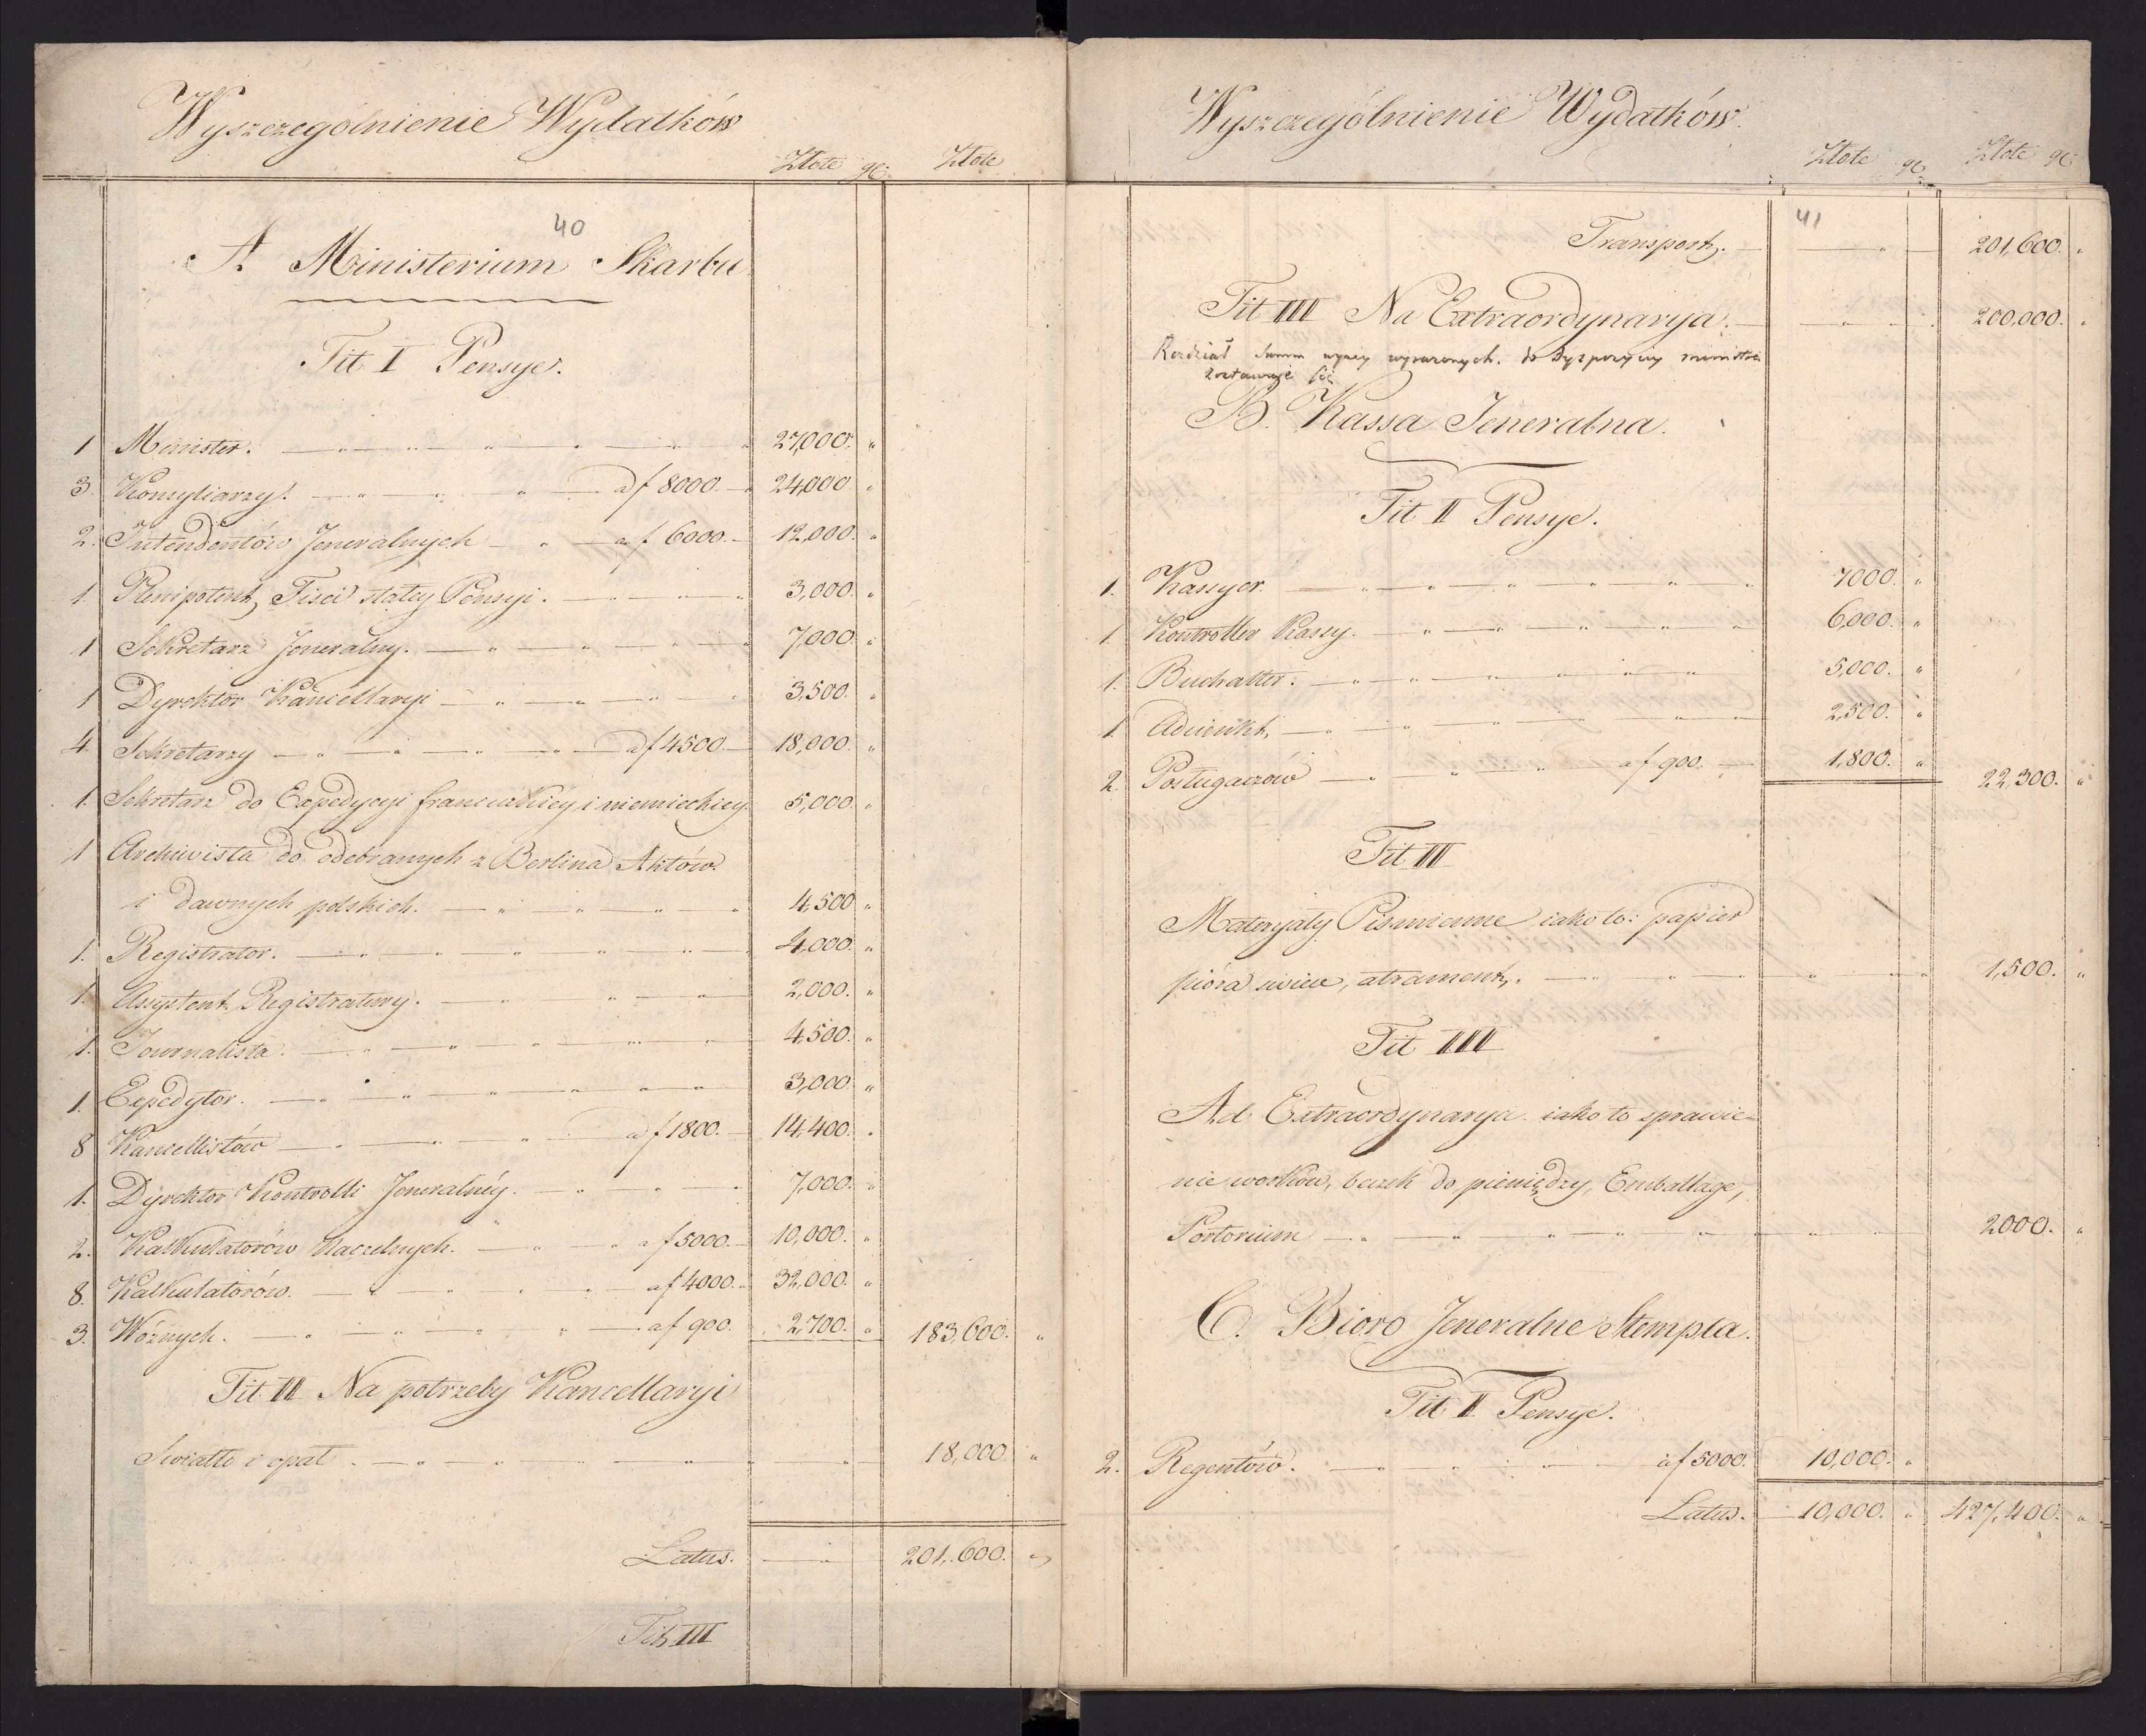 Wyszczególnienie Wydatków
Złote gr. Złote
40
A. Ministerium Skarbu
Tit I Pensye.
1 Minister. 27,000.
3. Konsyliarzy. a f 8000. 24,000
2. Intendentów Jeneralnych a f 6000. 12,000.
1 Plenipotent Fisci stałey Pensyi. 3,000.
1 Sekretarz Jeneralny. 7,000
1 Dyrektor Kancellaryi 3,500.
4 Sekretarzy a f 4500 18,000
1. Sekretarz do Expedycyi francuskiéy i niemieckiey 5,000
1 Archiwista do odebranych z Berlina Aktów
i dawnych polskich. 4,500
1. Registrator. 4,000
1. Assystent Registratury. 2,000.
1. Journalista. 4,500
1. Expedytor. 3,000
8 Kancellistów a f 1800. 14,400.
1. Dyrektor Kontrolli Jeneralnéy. 7,000.
2. Kalkulatorów Naczelnych. a f 5000. 10,000.
8. Kalkulatorów. a f 4000. 32,000.
3. Woźnych. a f 900. 2,700. 183,600.
Tit II Na potrzeby Kancellaryi
Swiatło i opał 18,000
Latus. 201,600.
Tit III
Wyszczególnienie Wydatków.
Złote gr. Złote gr.
41
Transport. 201,600.
Tit III Na Extraordynarya. 200,000.
Rozdział Summ wyżey wyrażonych do dyspozycyi ministra
zostawuje się
B. Kassa Jeneralna.
Tit I Pensye.
1. Kassyer. 7000.
1. Kontroller Kassy. 6,000.
1. Buchalter. 5,000.
1. Adiunkt. 2,500.
2. Posługaczów a f 900. 1,800. 22,300.
Tit II
Materyały Pismienne iako to: papier
pióra swiece, atrament. 1,500.
Tit III
Ad Extraordynarya iako to sprawie-
nie worków, beczek do pieniędzy, Emballage,
Portorium 2000.
C. Bioro Jeneralne Stempla.
Tit I Pensye.
2. Regentów. a f 5000. 10,000.
Latus. 10,000. 427,400.